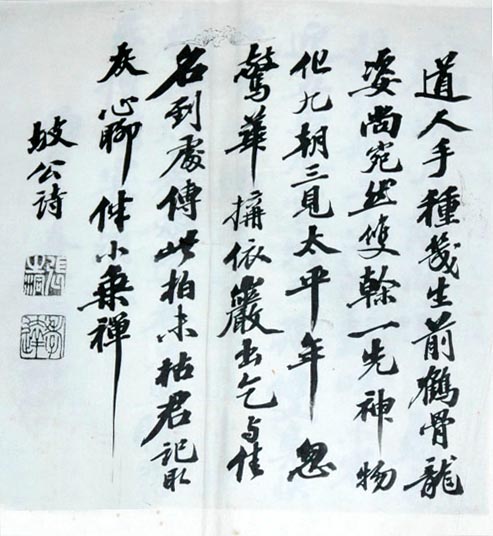 道人手種幾生前鶴骨龍
姿尚宛然雙榦一先神物
化九朝三見太平年忽
驚華構依巖出乞与佳
名到處傳此柏未枯君記取
灰心聊伴小乘禪
坡公詩
張之洞
孝達